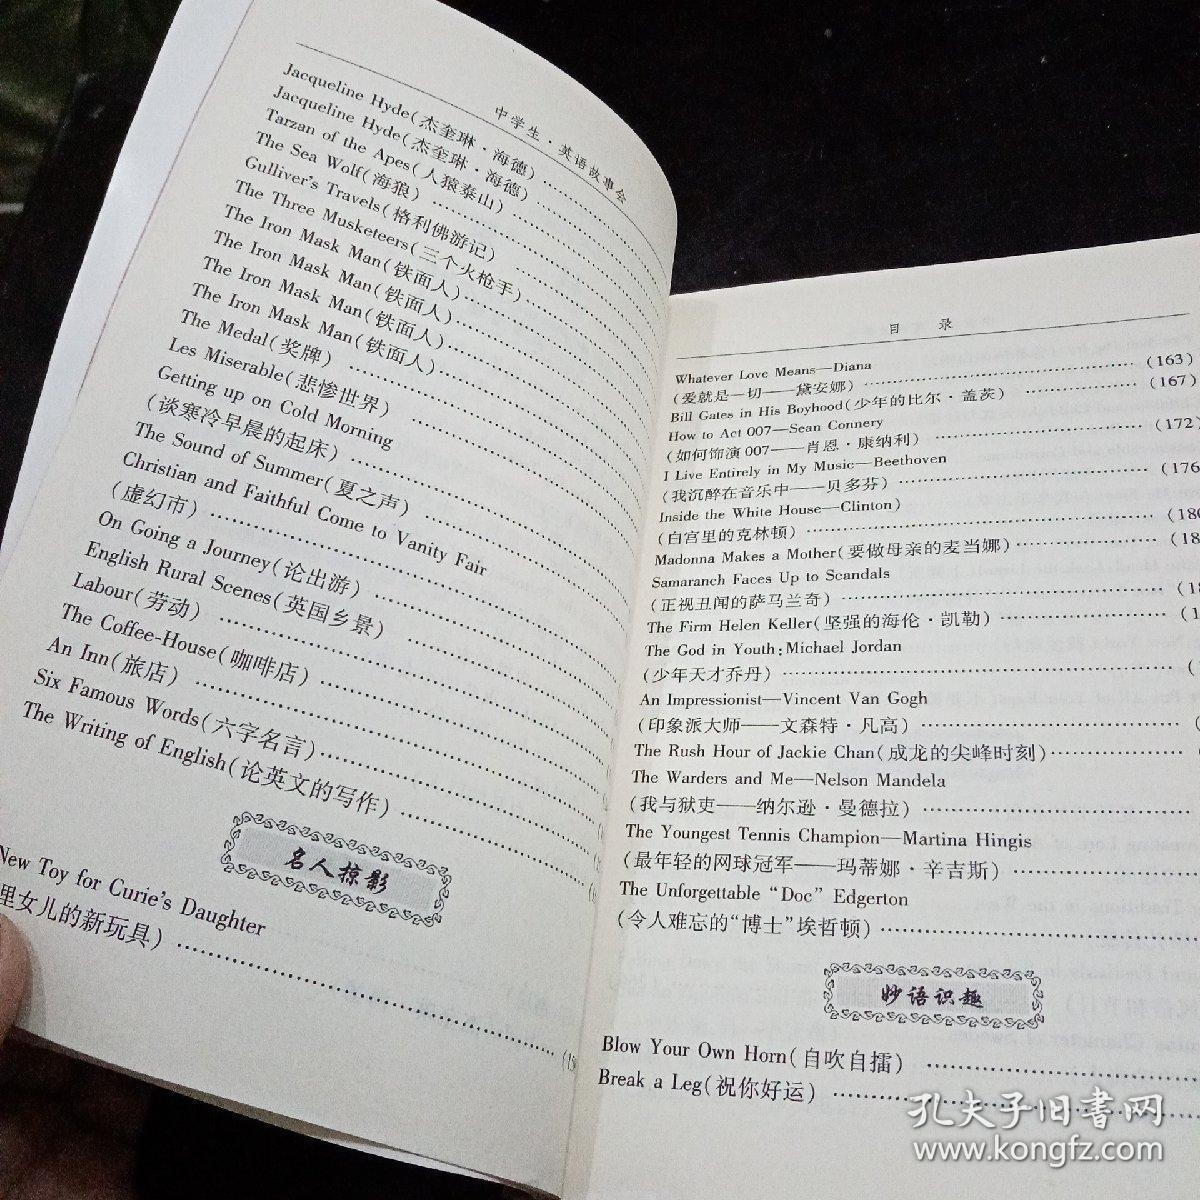 中学生·英语故事会
Jacqueline Hyde(杰奎琳·海德)
Jacqueline Hyde(杰奎琳·海德)
Tarzan of the Apes(人猿泰山)
The Sea Wolf(海狼)
Gulliver's Travels(格利佛游记)
The Three Musketeers(三个火枪手)
The Iron Mask Man(铁面人)
The Iron Mask Man(铁面人)
The Iron Mask Man(铁面人)
The Iron Mask Man(铁面人)
The Medal(奖牌)
Les Miserable(悲惨世界)
Getting up on Cold Morning
(谈寒冷早晨的起床)
The Sound of Summer(夏之声)
Christian and Faithful Come to Vanity Fair
(虚幻市)
On Going a Journey(论出游)
English Rural Scenes(英国乡景)
Labour(劳动)
The Coffee-House(咖啡店)
An Inn(旅店)
Six Famous Words(六字名言)
The Writing of English(论英文的写作)
名人掠影
New Toy for Curie's Daughter
里女儿的新玩具)
目 录
Whatever Love Means—Diana
(爱就是一切——黛安娜) (163)
Bill Gates in His Boyhood(少年的比尔·盖茨) (167)
How to Act 007—Sean Connery
(如何饰演007——肖恩·康纳利) (172)
I Live Entirely in My Music—Beethoven
(我沉醉在音乐中——贝多芬) (176
Inside the White House—Clinton)
(白宫里的克林顿) (180
Madonna Makes a Mother(要做母亲的麦当娜) (18
Samaranch Faces Up to Scandals
(正视丑闻的萨马兰奇) (18
The Firm Helen Keller(坚强的海伦·凯勒) (1
The God in Youth:Michael Jordan
(少年天才乔丹) (
An Impressionist—Vincent Van Gogh
(印象派大师——文森特·凡高)
The Rush Hour of Jackie Chan(成龙的尖峰时刻)
The Warders and Me—Nelson Mandela
(我与狱吏——纳尔逊·曼德拉)
The Youngest Tennis Champion—Martina Hingis
(最年轻的网球冠军——玛蒂娜·辛吉斯)
The Unforgettable “Doc” Edgerton
(令人难忘的“博士”埃哲顿)
妙语识趣
Blow Your Own Horn(自吹自擂)
Break a Leg(祝你好运)
孔夫子旧书网
www.kongfz.com